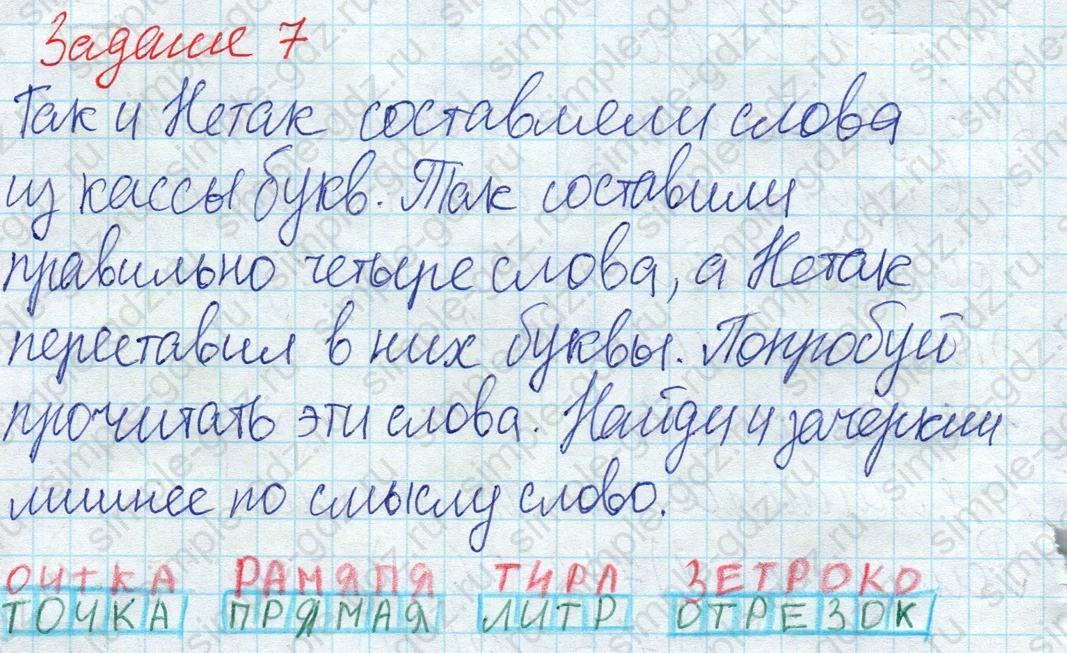 Задание 7
Так и Нетак составляли слова
из кассы букв. Так составили
правильно четыре слова, а Нетак
переставил в них буквы. Попробуй
прочитать эти слова. Найди и зачеркни
лишнее по смыслу слово.
ОЧТКА РАМЯПЯ ТИРЛ ЗЕТРОКО
ТОЧКА ПРЯМАЯ ЛИТР ОТРЕЗОК
simple-gdz.ru